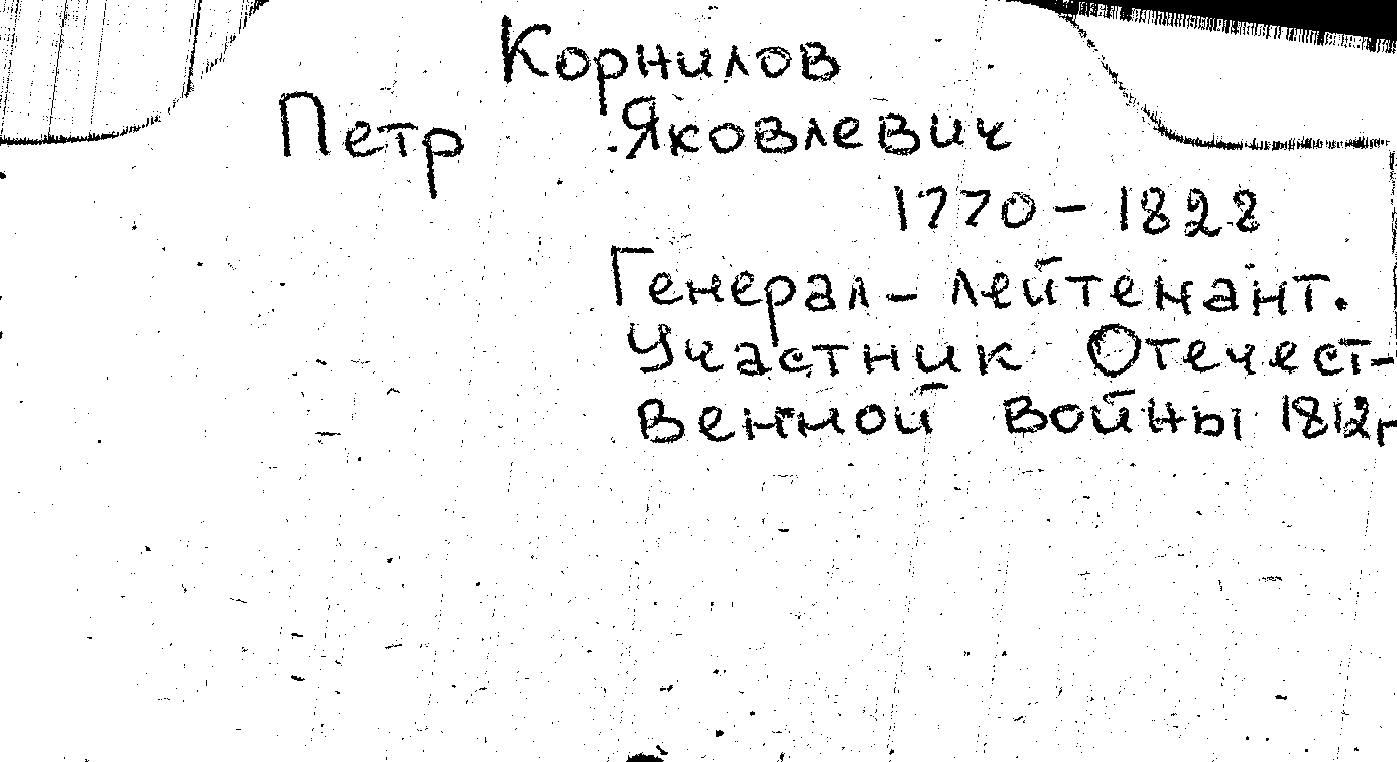 Корнилов
Петр Яковлевич
1770 - 1828
Генерал-лейтенант.
Участник Отечест-
венной войны 1812г